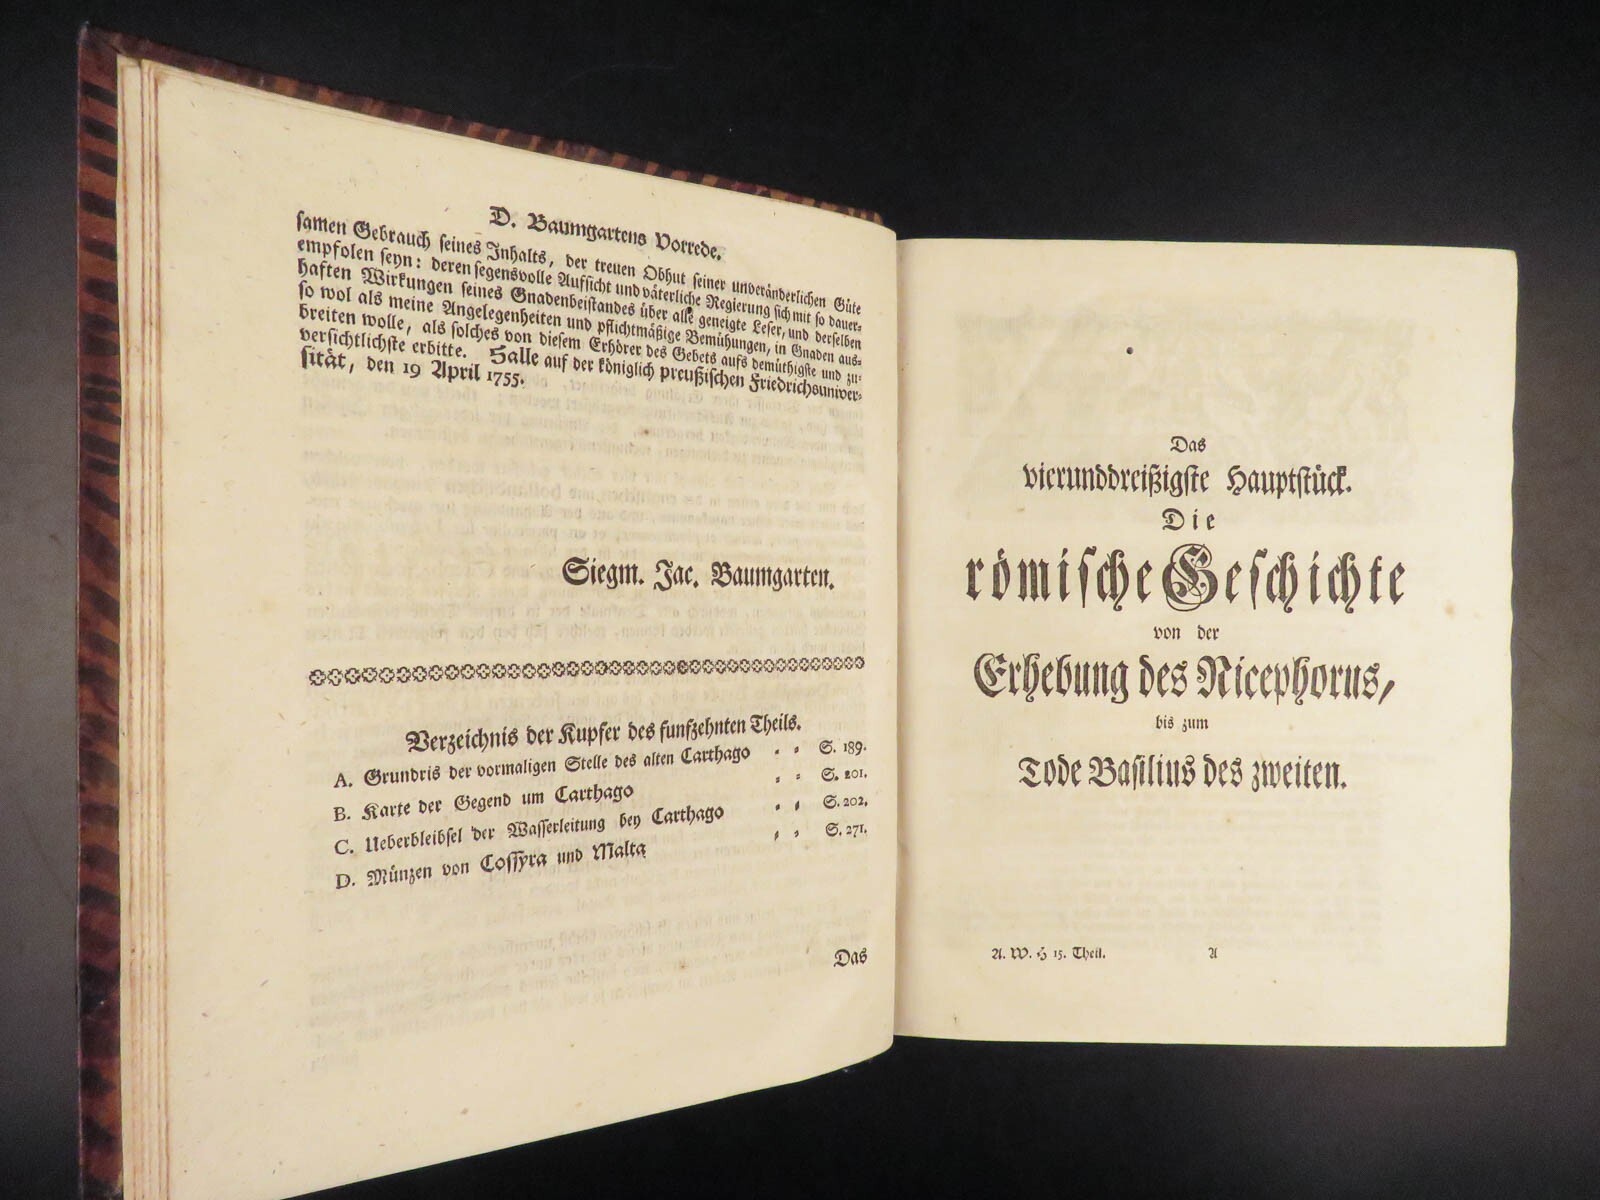 D. Baumgartens Vorrede.
samen Gebrauch seines Inhalts, der treuen Obhut seiner unveränderlichen Güte
empfolen seyn: deren segensvolle Aufsicht und väterliche Regierung sich mit so dauer-
haften Wirkungen seines Gnadenbeistandes über alle geneigte Leser, und derselben
so wol als meine Angelegenheiten und pflichtmäßige Bemühungen, in Gnaden aus-
breiten wolle, als solches von diesem Erhörer des Gebets aufs demüthigste und zu-
versichtlichste erbitte. Halle auf der königlich preußischen Friedrichsuniver-
sität, den 19 April 1755.
Siegm. Jac. Baumgarten.
Verzeichnis der Kupfer des funfzehnten Theils.
A. Grundris der vormaligen Stelle des alten Carthago S. 189.
B. Karte der Gegend um Carthago S. 201.
C. Ueberbleibsel der Wasserleitung bey Carthago S. 202.
D. Münzen von Cossyra und Malta S. 271.
Das
Das
vierunddreißigste Hauptstück.
Die
römische Geschichte
von der
Erhebung des Nicephorus,
bis zum
Tode Basilius des zweiten.
A. W. H 15. Theil. A